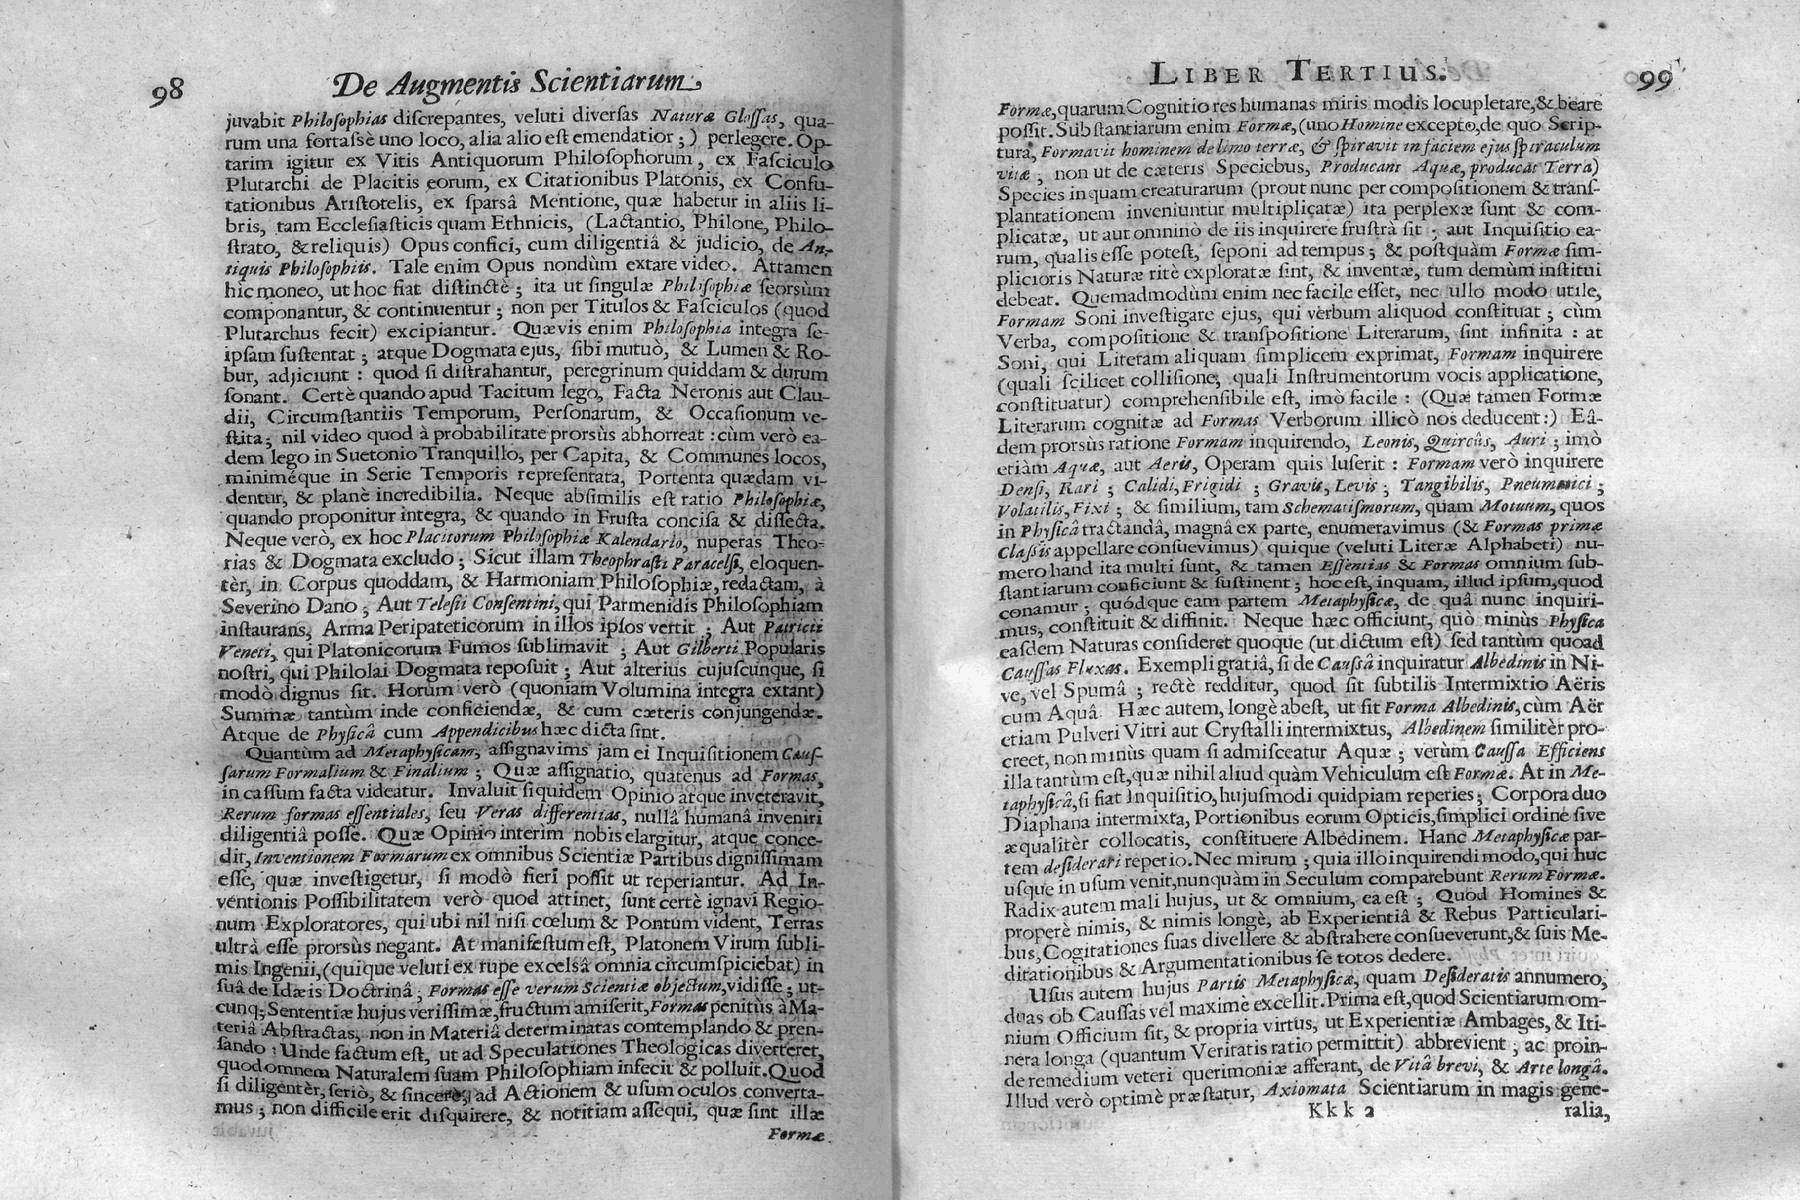 98
De Augmentis Scientiarum
juvabit Philosophias discrepantes, veluti diversas Naturæ Glossas, qua-
rum una fortassè uno loco, alia alio est emendatior;) perlegere. Op-
tarim igitur ex Vitis Antiquorum Philosophorum, ex Fasciculo
Plutarchi de Placitis eorum, ex Citationibus Platonis, ex Confu-
tationibus Aristotelis, ex sparsâ Mentione, quæ habetur in aliis li-
bris, tam Ecclesiasticis quam Ethnicis, (Lactantio, Philone, Philo-
strato, & reliquis) Opus confici, cum diligentiâ & judicio, de An-
tiquis Philosophiis. Tale enim Opus nondùm extare video. Attamen
hìc moneo, ut hoc fiat distinctè; ita ut singulæ Philosophiæ seorsùm
componantur, & continuentur; non per Titulos & Fasciculos (quod
Plutarchus fecit) excipiantur. Quævis enim Philosophia integra se-
ipsam sustentat; atque Dogmata ejus, sibi mutuò, & Lumen & Ro-
bur, adjiciunt: quod si distrahantur, peregrinum quiddam & durum
sonant. Certè quando apud Tacitum lego, Facta Neronis aut Clau-
dii, Circumstantiis Temporum, Personarum, & Occasionum ve-
stita; nil video quod à probabilitate prorsùs abhorreat: cùm verò ea-
dem lego in Suetonio Tranquillo, per Capita, & Communes locos,
miniméque in Serie Temporis repræsentata, Portenta quædam vi-
dentur, & planè incredibilia. Neque absimilis est ratio Philosophiæ,
quando proponitur integra, & quando in Frusta concisa & dissecta.
Neque verò, ex hoc Placitorum Philosophiæ Kalendario, nuperas Theo-
rias & Dogmata excludo; Sicut illam Theophrasti Paracelsi, eloquen-
tèr, in Corpus quoddam, & Harmoniam Philosophiæ, redactam, à
Severino Dano; Aut Telesii Consentini, qui Parmenidis Philosophiam
instaurans, Arma Peripateticorum in illos ipsos vertit; Aut Patricii
Veneti, qui Platonicorum Fumos sublimavit; Aut Gilberti Popularis
nostri, qui Philolai Dogmata reposuit; Aut alterius cujuscunque, si
modò dignus sit. Horum verò (quoniam Volumina integra extant)
Summæ tantùm inde conficiendæ, & cum cæteris conjungendæ.
Atque de Physicâ cum Appendicibus hæc dicta sint.
Quantùm ad Metaphysicam, assignavims jam ei Inquisitionem Caus-
sarum Formalium & Finalium; Quæ assignatio, quatenus ad Formas,
in cassum facta videatur. Invaluit siquidem Opinio atque inveteravit,
Rerum formas essentiales, seu Veras differentias, nullâ humanâ inveniri
diligentiâ posse. Quæ Opinio interim nobis elargitur, atque conce-
dit, Inventionem Formarum ex omnibus Scientiæ Partibus dignissimam
esse, quæ investigetur, si modò fieri possit ut reperiantur. Ad In-
ventionis Possibilitatem verò quod attinet, sunt certè ignavi Regio-
num Exploratores, qui ubi nil nisi cœlum & Pontum vident, Terras
ultrà esse prorsùs negant. At manifestum est, Platonem Virum subli-
mis Ingenii, (quique veluti ex rupe excelsâ omnia circumspiciebat) in
suâ de Idæis Doctrinâ; Formas esse verum Scientiæ objectum, vidisse; ut-
cunq; Sententiæ hujus verissimæ, fructum amiserit, Formas penitùs à Ma-
teriâ Abstractas, non in Materiâ determinatas contemplando & pren-
sando: Unde factum est, ut ad Speculationes Theologicas diverteret,
quod omnem Naturalem suam Philosophiam infecit & polluit. Quod
si diligentèr, seriò, & sincerè, ad Actionem & usum oculos converta-
mus; non difficile erit disquirere, & notitiam assequi, quæ sint illæ
Formæ
LIBER TERTIUS.
99
Formæ, quarum Cognitio res humanas miris modis locupletare, & beare
possit. Substantiarum enim Formæ, (uno Homine excepto, de quo Scrip-
tura, Formavit hominem de limo terræ, & spiravit in faciem ejus spiraculum
vitæ; non ut de cæteris Speciebus, Producant Aquæ, producat Terra)
Species inquam creaturarum (prout nunc per compositionem & trans-
plantationem inveniuntur multiplicatæ) ita perplexæ sunt & com-
plicatæ, ut aut omninò de iis inquirere frustrà sit; aut Inquisitio ea-
rum, qualis esse potest, seponi ad tempus; & postquàm Formæ sim-
plicioris Naturæ ritè exploratæ sint, & inventæ, tum demùm institui
debeat. Quemadmodùm enim nec facile esset, nec ullo modo utile,
Formam Soni investigare ejus, qui verbum aliquod constituat; cùm
Verba, compositione & transpositione Literarum, sint infinita: at
Soni, qui Literam aliquam simplicem exprimat, Formam inquirere
(quali scilicet collisione, quali Instrumentorum vocis applicatione,
constituatur) comprehensibile est, imò facile: (Quæ tamen Formæ
Literarum cognitæ ad Formas Verborum illicò nos deducent:) Eâ-
dem prorsùs ratione Formam inquirendo, Leonis, Quircûs, Auri; imò
etiàm Aquæ, aut Aeris, Operam quis luserit: Formam verò inquirere
Densi, Rari; Calidi, Frigidi; Gravis, Levis; Tangibilis, Pneumatici;
Volatilis, Fixi; & similium, tam Schematismorum, quam Motuum, quos
in Physicâ tractandâ, magnâ ex parte, enumeravimus (& Formas primæ
Classis appellare consuevimus) quique (veluti Literæ Alphabeti) nu-
mero hand ita multi sunt, & tamen Essentias & Formas omnium sub-
stantiarum conficiunt & sustinent; hoc est, inquam, illud ipsum, quod
conamur; quódque eam partem Metaphysicæ, de quâ nunc inquiri-
mus, constituit & diffinit. Neque hæc officiunt, quò minùs Physica
easdem Naturas consideret quoque (ut dictum est) sed tantùm quoad
Caussas Fluxas. Exempli gratiâ, si de Caussâ inquiratur Albedinis in Ni-
ve, vel Spumâ; rectè redditur, quod sit subtilis Intermixtio Aëris
cum Aquâ. Hæc autem, longè abest, ut sit Forma Albedinis, cùm Aër
etiam Pulveri Vitri aut Crystalli intermixtus, Albedinem similitèr pro-
creet, non minùs quam si admisceatur Aquæ; verùm Caussa Efficiens
illa tantùm est, quæ nihil aliud quàm Vehiculum est Formæ. At in Me-
taphysicâ, si fiat Inquisitio, hujusmodi quidpiam reperies; Corpora duo
Diaphana intermixta, Portionibus eorum Opticis, simplici ordine sive
æqualitèr collocatis, constituere Albedinem. Hanc Metaphysicæ par-
tem desiderari reperio. Nec mirum; quia illo inquirendi modo, qui huc
usque in usum venit, nunquàm in Seculum comparebunt Rerum Formæ.
Radix autem mali hujus, ut & omnium, ea est; Quòd Homines &
properè nimis, & nimis longè, ab Experientiâ & Rebus Particulari-
bus, Cogitationes suas divellere & abstrahere consueverunt, & suis Me-
ditationibus & Argumentationibus se totos dedere.
Usus autem hujus Partis Metaphysicæ, quam Desideratis annumero,
duas ob Caussas vel maximè excellit. Prima est, quod Scientiarum om-
nium Officium sit, & propria virtus, ut Experientiæ Ambages, & Iti-
nera longa (quantum Veritatis ratio permittit) abbrevient; ac proin-
de remedium veteri querimoniæ afferant, de Vitâ brevi, & Arte longâ.
Illud verò optimè præstatur, Axiomata Scientiarum in magis gene-
Kkk 2
ralia,